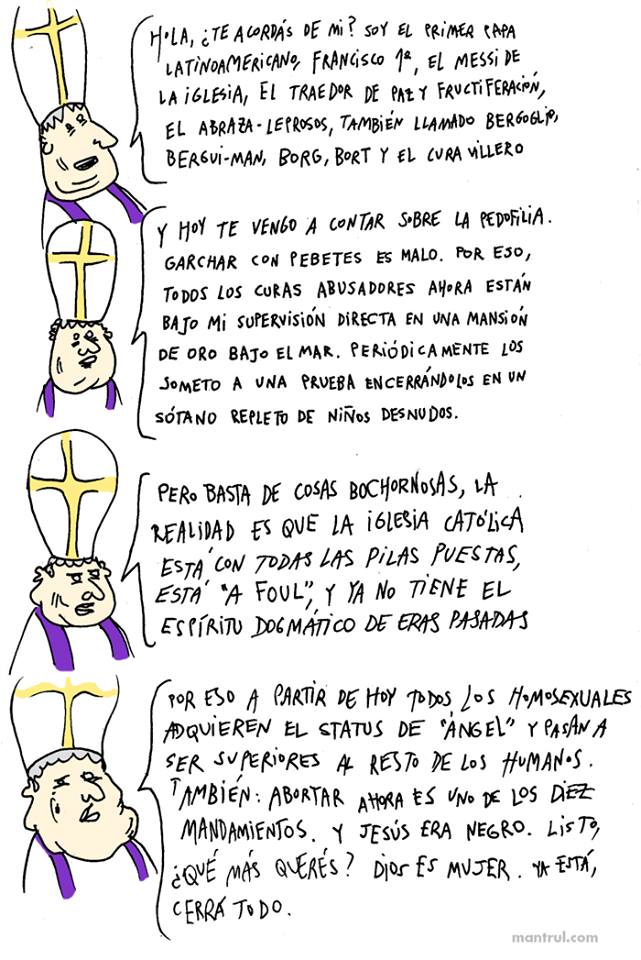 HOLA, ¿TE ACORDÁS DE MI? SOY EL PRIMER PAPA
LATINOAMERICANO, FRANCISCO 1º, EL MESSI DE
LA IGLESIA, EL TRAEDOR DE PAZ Y FRUCTIFERACIÓN,
EL ABRAZA-LEPROSOS, TAMBIÉN LLAMADO BERGOGLIO,
BERGUI-MAN, BORG, BORT Y EL CURA VILLERO
Y HOY TE VENGO A CONTAR SOBRE LA PEDOFILIA.
GARCHAR CON PEBETES ES MALO. POR ESO,
TODOS LOS CURAS ABUSADORES AHORA ESTÁN
BAJO MI SUPERVISIÓN DIRECTA EN UNA MANSIÓN
DE ORO BAJO EL MAR. PERIÓDICAMENTE LOS
SOMETO A UNA PRUEBA ENCERRÁNDOLOS EN UN
SÓTANO REPLETO DE NIÑOS DESNUDOS.
PERO BASTA DE COSAS BOCHORNOSAS, LA
REALIDAD ES QUE LA IGLESIA CATÓLICA
ESTÁ CON TODAS LAS PILAS PUESTAS,
ESTÁ "A FOUL", Y YA NO TIENE EL
ESPÍRITU DOGMÁTICO DE ERAS PASADAS
POR ESO A PARTIR DE HOY TODOS LOS HOMOSEXUALES
ADQUIEREN EL STATUS DE "ÁNGEL" Y PASAN A
SER SUPERIORES AL RESTO DE LOS HUMANOS.
TAMBIÉN: ABORTAR AHORA ES UNO DE LOS DIEZ
MANDAMIENTOS. Y JESÚS ERA NEGRO. LISTO,
¿QUÉ MÁS QUERÉS? DIOS ES MUJER. YA ESTÁ,
CERRÁ TODO.
mantrul.com